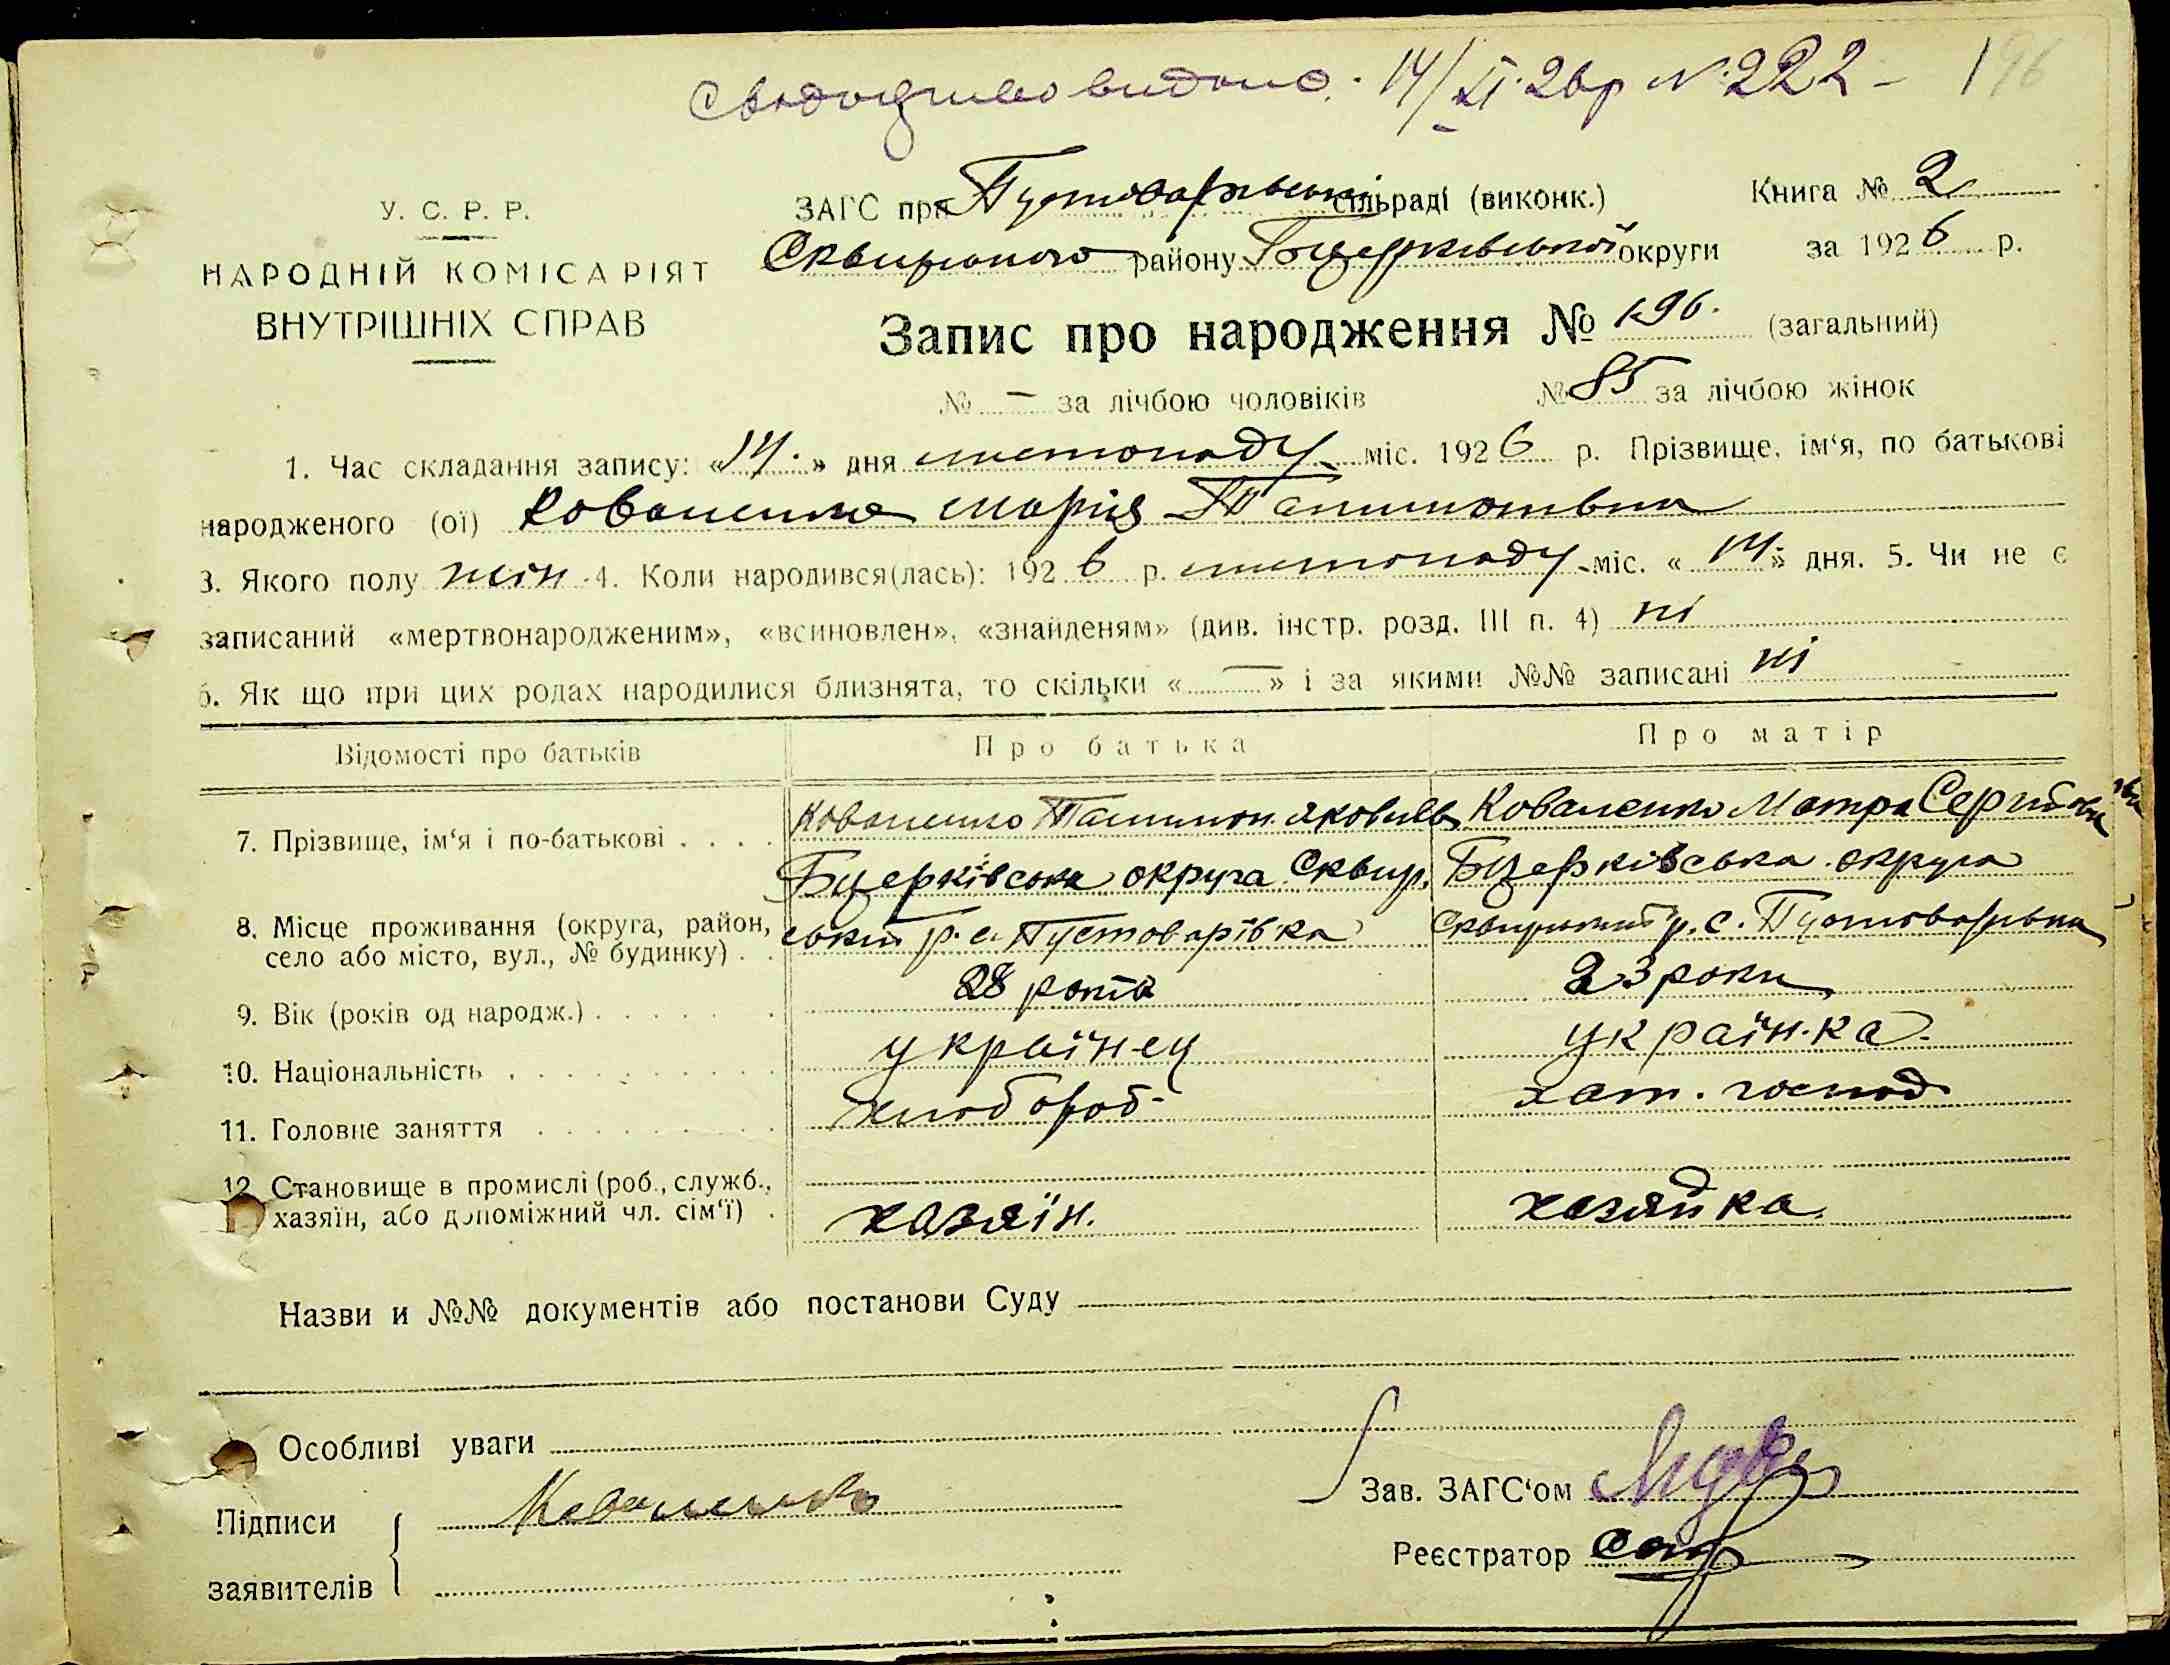 Свідоцтво видано. 14/XI.26р №.222 – 196
У. С. Р. Р.
НАРОДНІЙ КОМІСАРІЯТ
ВНУТРІШНІХ СПРАВ
ЗАГС при Пустоварівській сільраді (виконк.) Книга № 2
Сквирського району Бцерківської округи за 1926 р.
Запис про народження № 196. (загальний)
№ – за лічбою чоловіків № 85 за лічбою жінок
1. Час складання запису: «14.» дня листопаду міс. 1926 р. Прізвище, ім‘я, по батькові
народженого (ої) Коваленко Марія
3. Якого полу жін 4. Коли народився(лась): 1926 р. листопаду міс. «14» дня. 5. Чи не є
записаний «мертвонародженим», «всиновлен», «знайденям» (див. інстр. розд. III п. 4) ні
6. Як що при цих родах народилися близнята, то скільки « — » і за якими №№ записані ні
Відомості про батьків Про батька Про матір
7. Прізвище, ім‘я і по-батькові . . . . Коваленко Яковлев Коваленко Мотря Сергійовна
Бцерківська округа Сквир. Бцерківська округа
8. Місце проживання (округа, район, ський р. с. Пустоварівка Сквирський р. с. Пустоварівка
село або місто, вул., № будинку) . .
9. Вік (років од народж.) . . . . . . 28 років 23 роки
10. Національність . . . . . . . . . українец українка.
11. Головне заняття . . . . . . . . хлібороб- хат. господ
12 Становище в промислі (роб., служб.,
хазяїн, або допоміжний чл. сім‘ї) . хазяїн. хазяйка.
Назви и №№ документів або постанови Суду
Особливі уваги
Підписи Коваленко
заявителів
Зав. ЗАГС‘ом
Реєстратор